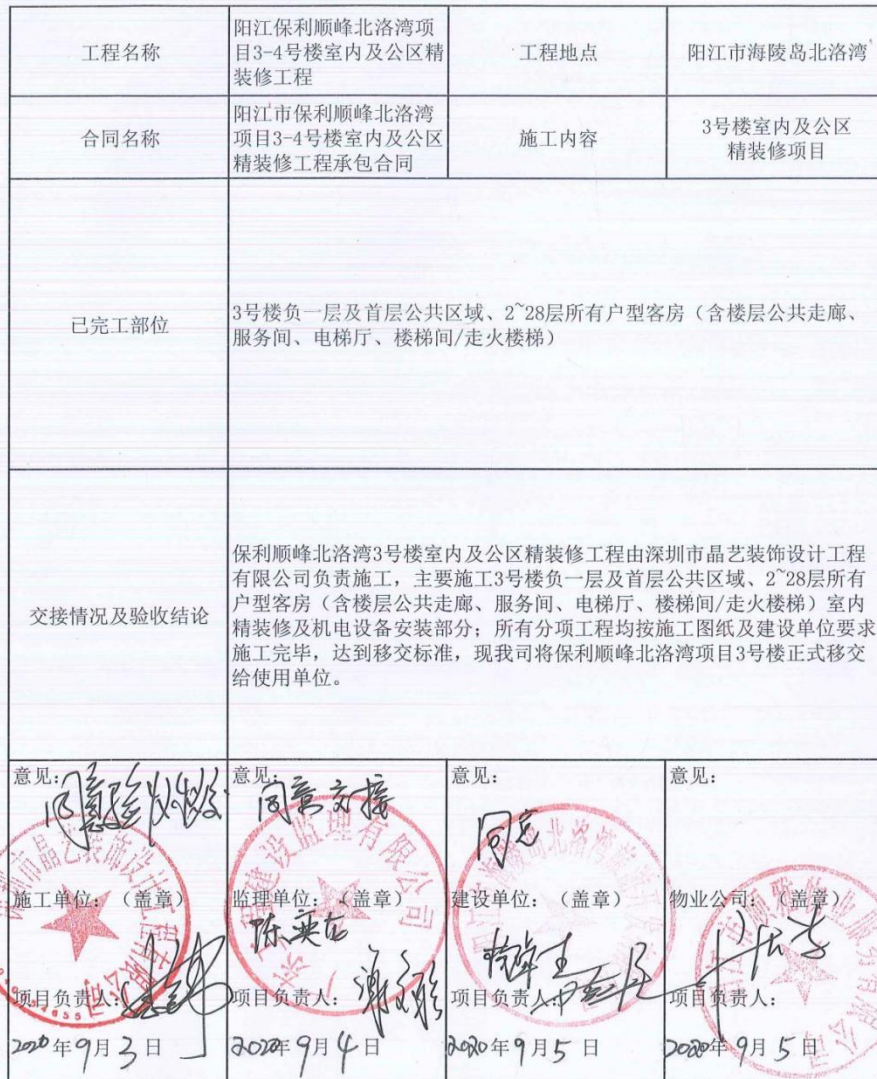 工程名称
阳江保利顺峰北洛湾项
目3-4号楼室内及公区精
装修工程
工程地点
阳江市海陵岛北洛湾
合同名称
阳江市保利顺峰北洛湾
项目3-4号楼室内及公区
精装修工程承包合同
施工内容
3号楼室内及公区
精装修项目
已完工部位
3号楼负一层及首层公共区域、2~28层所有户型客房（含楼层公共走廊、
服务间、电梯厅、楼梯间/走火楼梯）
交接情况及验收结论
保利顺峰北洛湾3号楼室内及公区精装修工程由深圳市晶艺装饰设计工程
有限公司负责施工，主要施工3号楼负一层及首层公共区域、2~28层所有
户型客房（含楼层公共走廊、服务间、电梯厅、楼梯间/走火楼梯）室内
精装修及机电设备安装部分；所有分项工程均按施工图纸及建设单位要求
施工完毕，达到移交标准，现我司将保利顺峰北洛湾项目3号楼正式移交
给使用单位。
意见：
同意验收移交
施工单位：（盖章）
项目负责人：
2020年9月3日
意见：
同意交接
监理单位：（盖章）
项目负责人：
2020年9月4日
意见：
同意
建设单位：（盖章）
项目负责人：
2020年9月5日
意见：
物业公司：（盖章）
项目负责人：
2020年9月5日